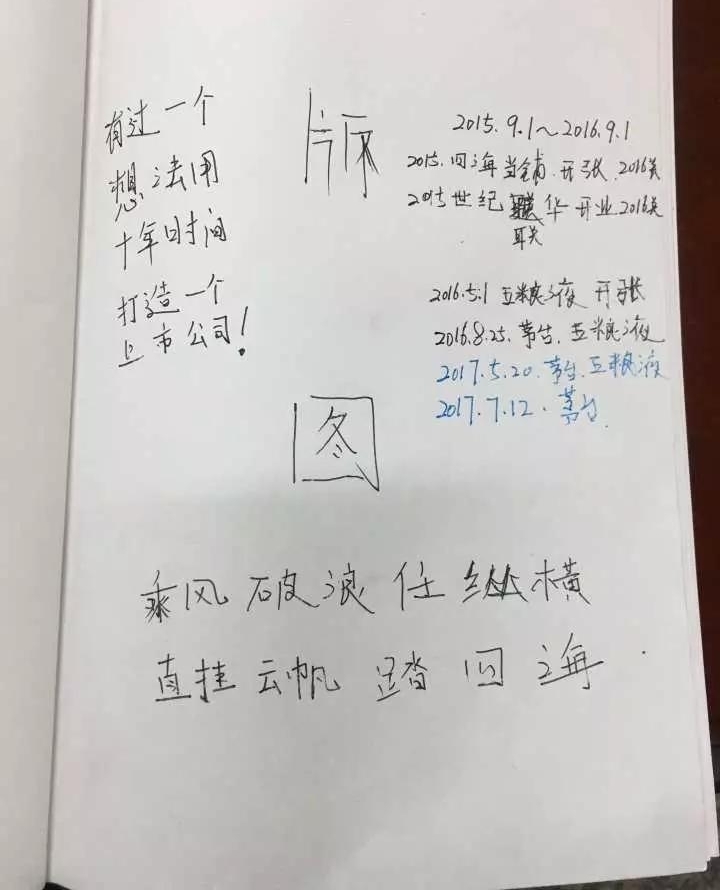 有过一个
想法用
十年时间
打造一个
上市公司!
版
图
2015.9.1~2016.9.1
2015.四海当铺.开张.2016关
2015世纪联华开业2016关
联
2016.5.1 五粮液 开张
2016.8.25.茅台.五粮液
2017.5.20.茅台.五粮液
2017.7.12.茅台.
乘风破浪任纵横
直挂云帆踏四海.